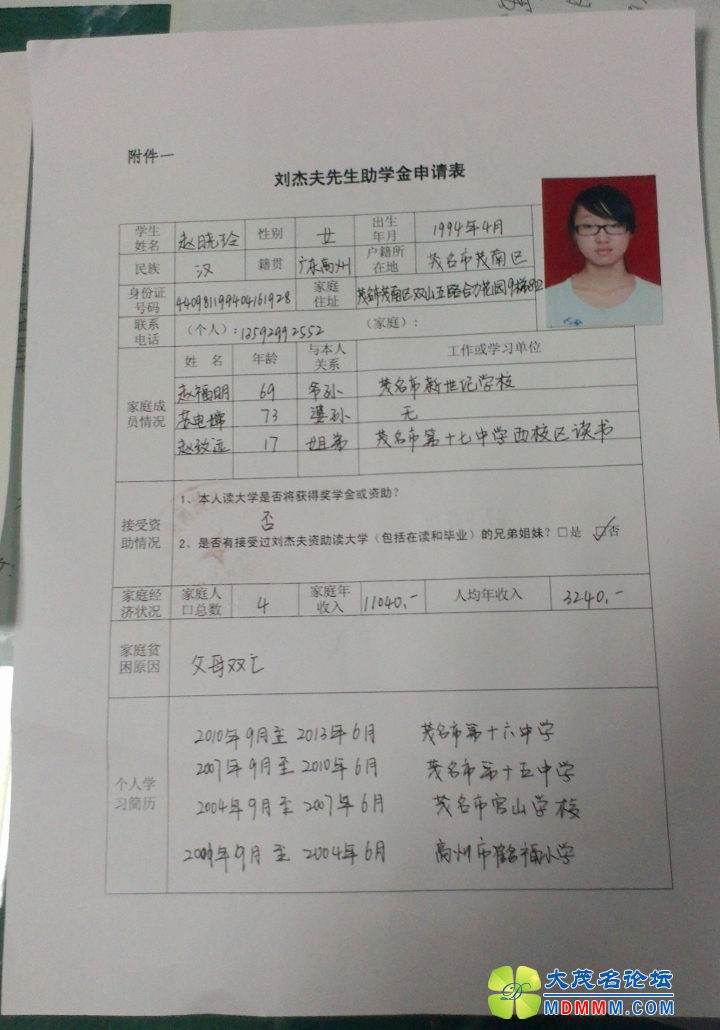 附件一
刘杰夫先生助学金申请表
学生姓名 赵晓玲 性别 女 出生年月 1994年4月
民族 汉 籍贯 广东高州 户籍所在地 茂名市茂南区
身份证号码 440981199404161928 家庭住址 茂名市茂南区双山五路合力花园9梯
联系电话 (个人):13592992552 (家庭):
家庭成员情况 姓 名 年龄 与本人关系 工作或学习单位
赵福明 69 爷孙 茂名市新世纪学校
73 婆孙 无
赵致远 17 姐弟 茂名市第十七中学西校区读书
接受资助情况 1、本人读大学是否将获得奖学金或资助?
否
2、是否有接受过刘杰夫资助读大学(包括在读和毕业)的兄弟姐妹?□是 ☑否
家庭经济状况 家庭人口总数 4 家庭年收入 11040.- 人均年收入 3240.-
家庭贫困原因 父母双亡
个人学习简历 2010年9月至2013年6月 茂名市第十六中学
2007年9月至2010年6月 茂名市第十五中学
2004年9月至2007年6月 茂名市官山学校
年9月至2004年6月 高州市鹤福小学
大茂名论坛
MDMMM.COM